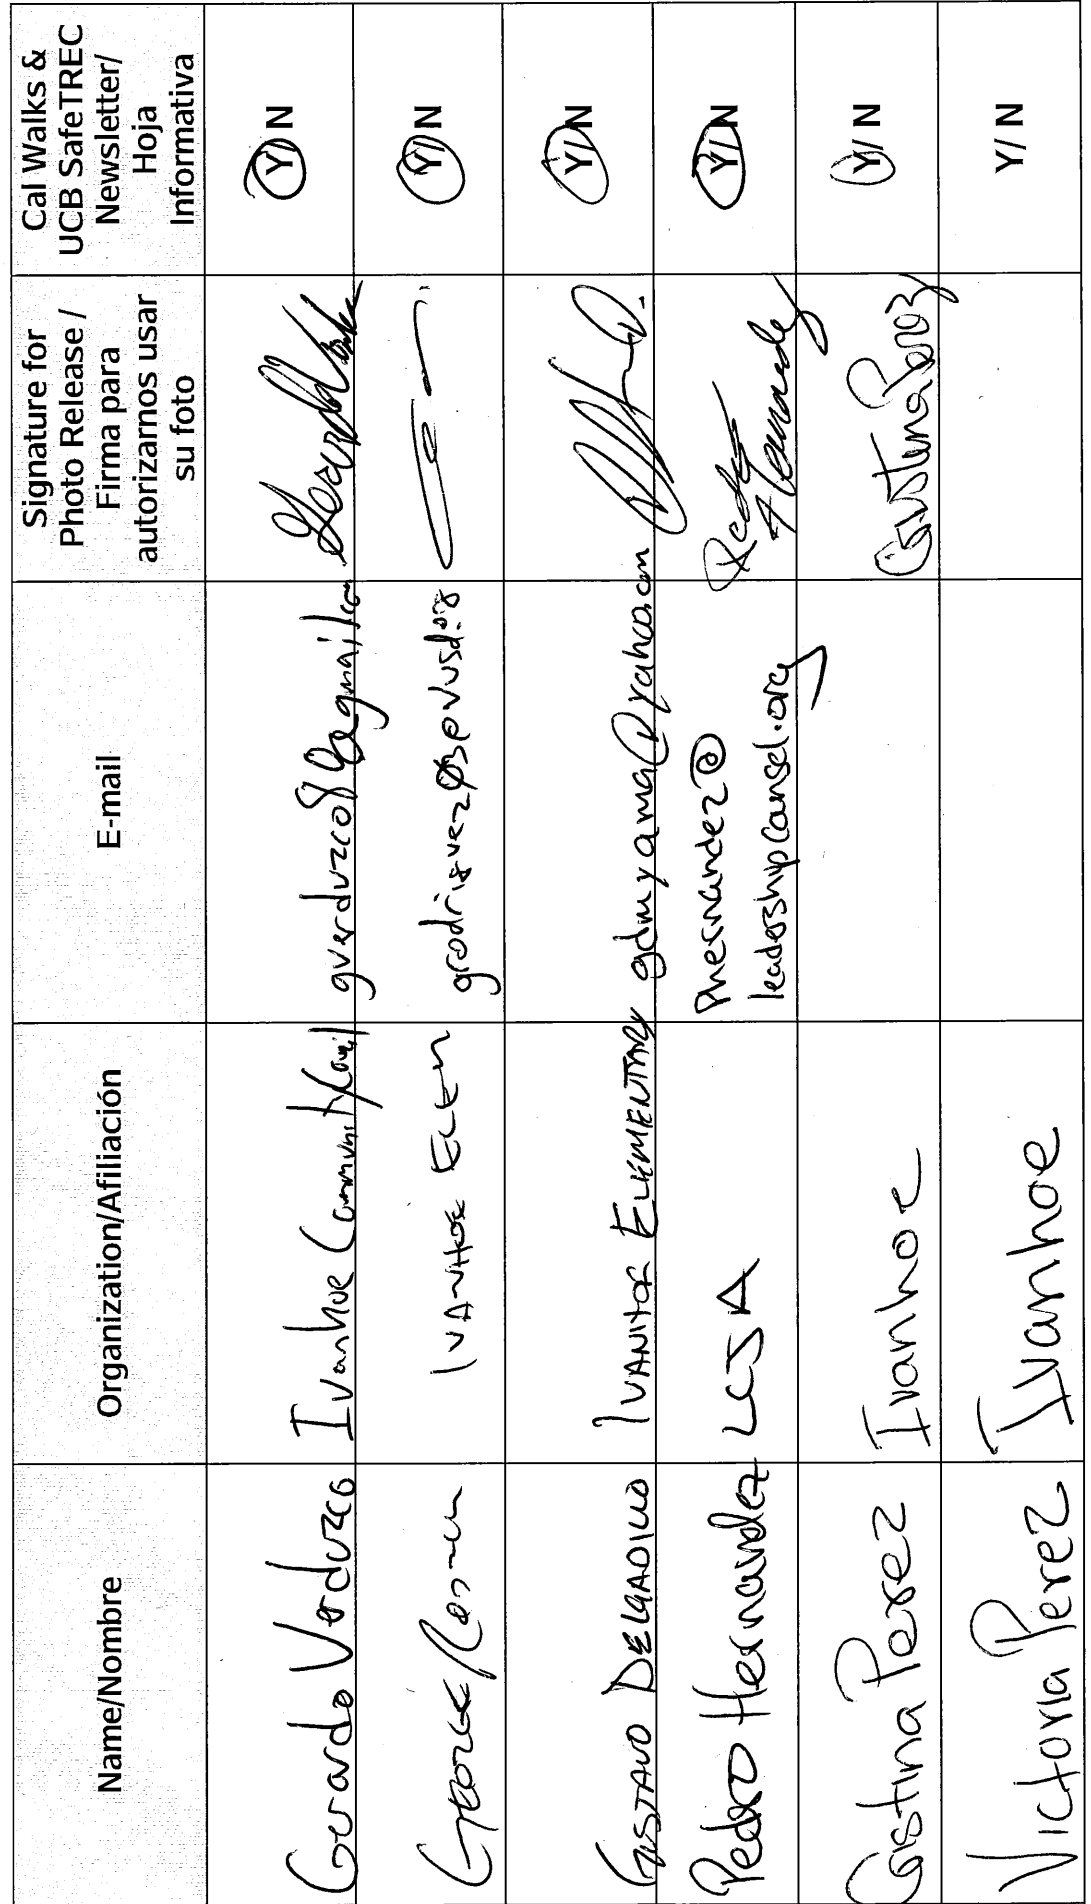 Name/Nombre
Organization/Afiliación
E-mail
Signature for
Photo Release /
Firma para
autorizarnos usar
su foto
Cal Walks &
UCB SafeTREC
Newsletter/
Hoja
Informativa
Gerardo Verduzco
Ivanhoe Community
Y/ N
George
IVANHOE ELEM
Y/ N
GUSTAVO DELGADILLO
IVANHOE ELEMENTARY
gdmyama@yahoo.com
Y/ N
Pedro Hernandez
LCJA
phernandez@
leadershipcounsel.org
Pedro
Hernandez
Y/ N
Cristina Perez
Ivanhoe
Cristina Perez
Y/ N
Victoria Perez
Ivanhoe
Y/ N